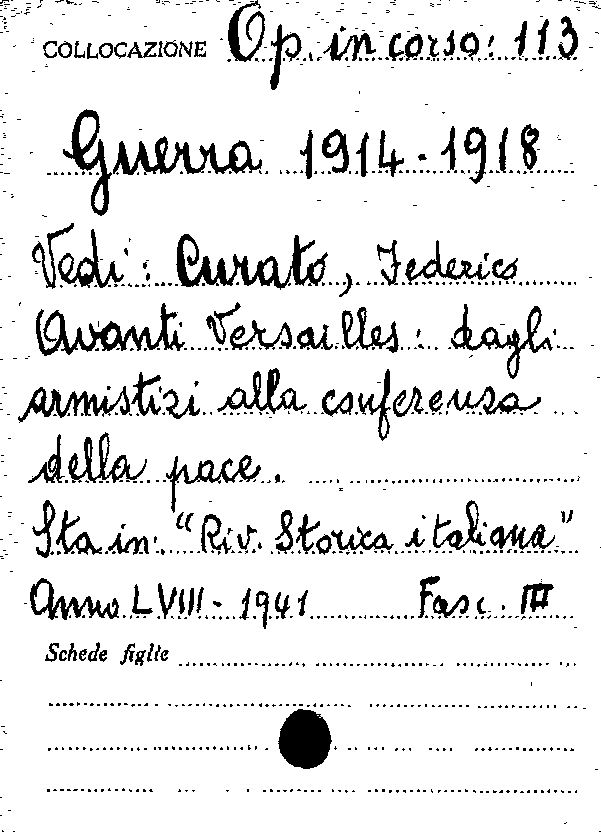 COLLOCAZIONE Op. in corso: 113
Guerra 1914-1918
Vedi: Curato, Federico
Avanti Versailles: dagli
armistizi alla conferenza
della pace.
Sta in: "Riv. Storica italiana"
Anno LVIII - 1941 Fasc. III
Schede figlie